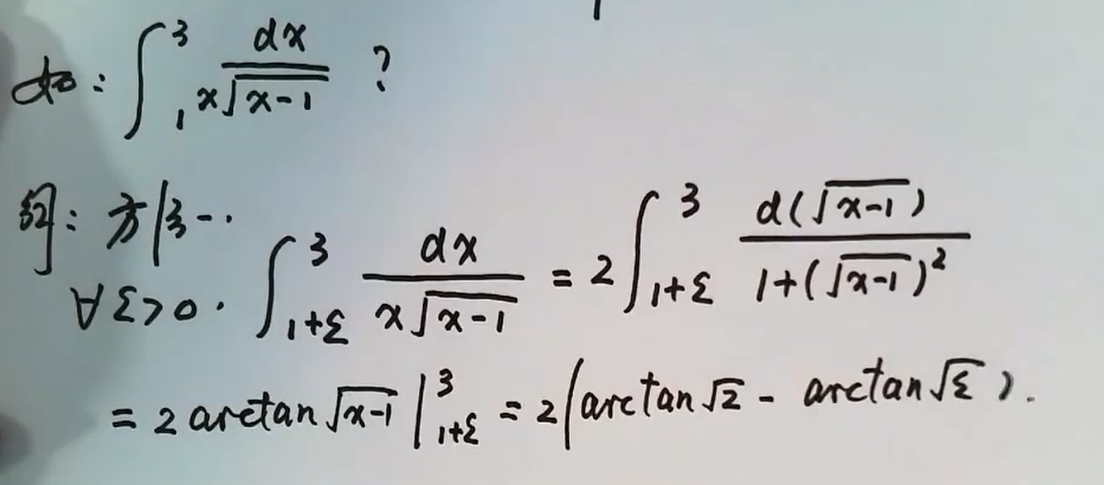 如: ∫₁³ dx/(x√(x-1)) ?
解: 方法一.
∀ε>0. ∫_{1+ε}^{3} dx/(x√(x-1)) = 2∫_{1+ε}^{3} d(√(x-1))/(1+(√(x-1))²)
= 2 arctan√(x-1) |_{1+ε}^{3} = 2(arctan√2 - arctan√ε).